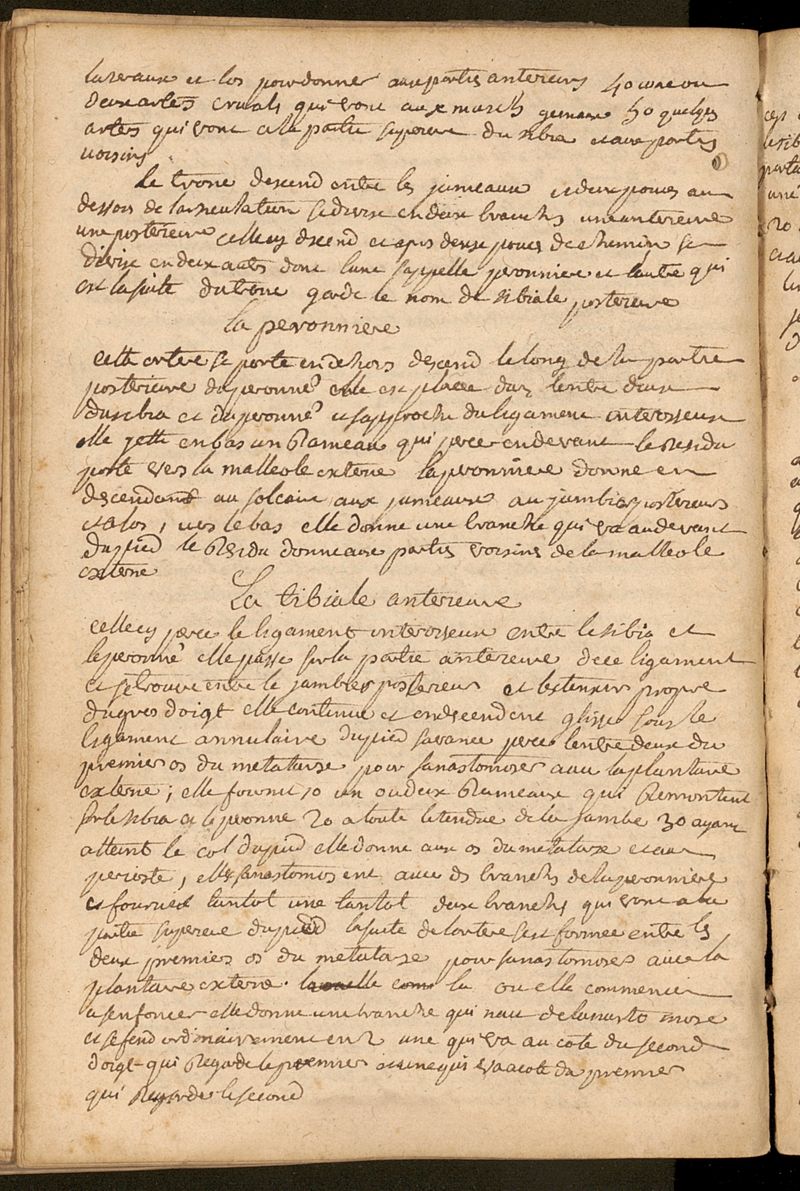 et los pour donner aux parties anterieures 4o une ou
deux arteres crurales qui vont aux muscles gemeaux 5o quelques
arteres qui vont a la partie superieure du tibia et aux parties
voisines
Le tronc descend entre les jumeaux et deux pouces au
dessous de larticulation se divise en deux branches une anterieure
une posterieure celle cy descend et apres deux pouces de chemin se
divise en deux autres dont lune sappelle peronniere et lautre qui
est la suite du tronc garde le nom de tibiale posterieure
La peronniere
cette artere se porte en dehors descend le long de la partie
posterieure du peronné elle est placee dans lentre deux
du tibia et du peronné et sapproche du ligament interosseux
elle jette en bas un Rameau qui perce en devant le Residu
porte vers la malleole externe la peronniere donne en
descendant au soleaire aux jumeaux au jambier posterieur
et a los, vers le bas elle donne une branche qui va au devant
du pied le Residu donne aux parties voisines de la malleole
externe
La tibiale anterieure
celle cy perce le ligament interosseux entre le tibia et
le peronné elle passe sur la partie anterieure de ce ligament
et se trouve entre le jambier posterieur et lextenseur propre
du gros doigt elle continue et en descendent glisse sous le
ligament annulaire du pied savance perce lentre deux du
premier os du metatarse pour sanastomoser avec la plantaire
externe; elle fournit 1o un ou deux Rameaux qui Remontent
sur le tibia et le peronne 2o a toute letendue de la jambe 3o ayant
atteint le col du pied elle donne aux os du metatarse et au
perioste, elles sanastomosent avec des branches de la peronniere
et fournit tantot une tantot deux branches qui vont a la
partie superieure du pied la suite de lartere sest formee entre les
deux premiers os du metatarse pour sanastomoser avec la
plantaire externe. la ou elle commence
a senfoncer elle donne une branche qui nait de lanastomose
et se fend ordinairement en 2 une qui va au coté du second
doigt qui Regarde le premier et une qui va a coté du premier
qui Regarde le second